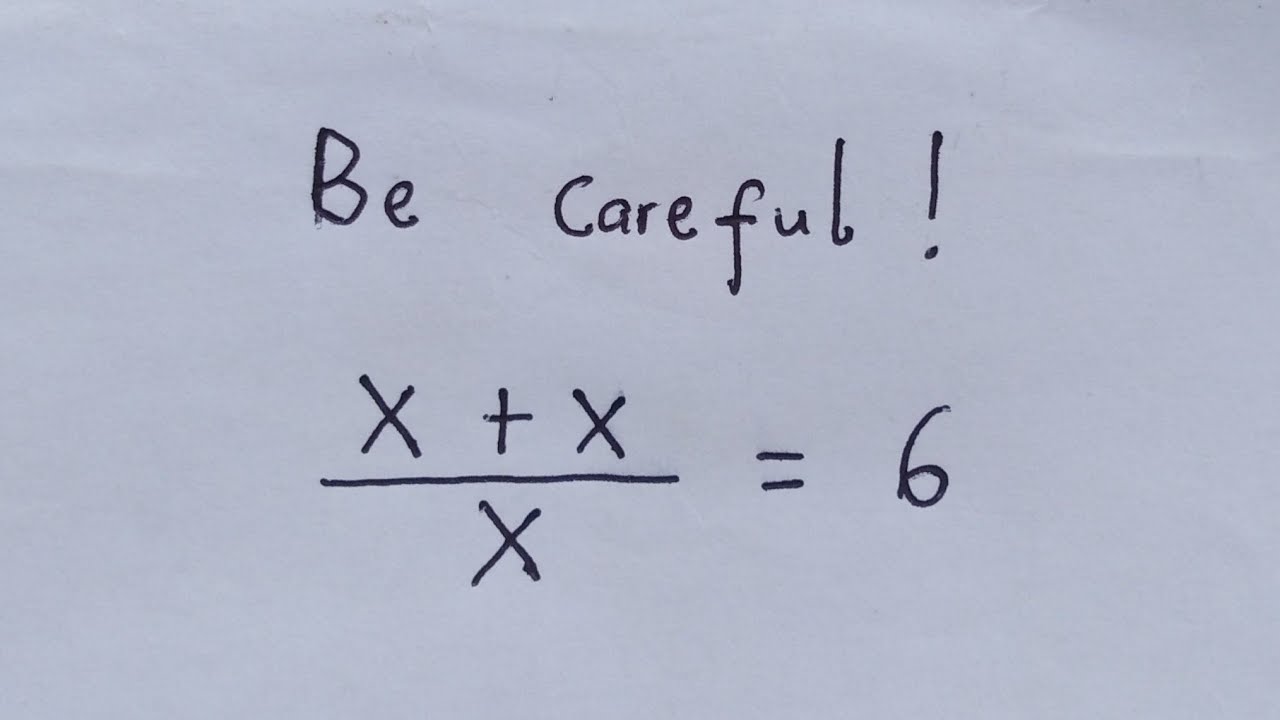 Be careful!
x + x
= 6
x